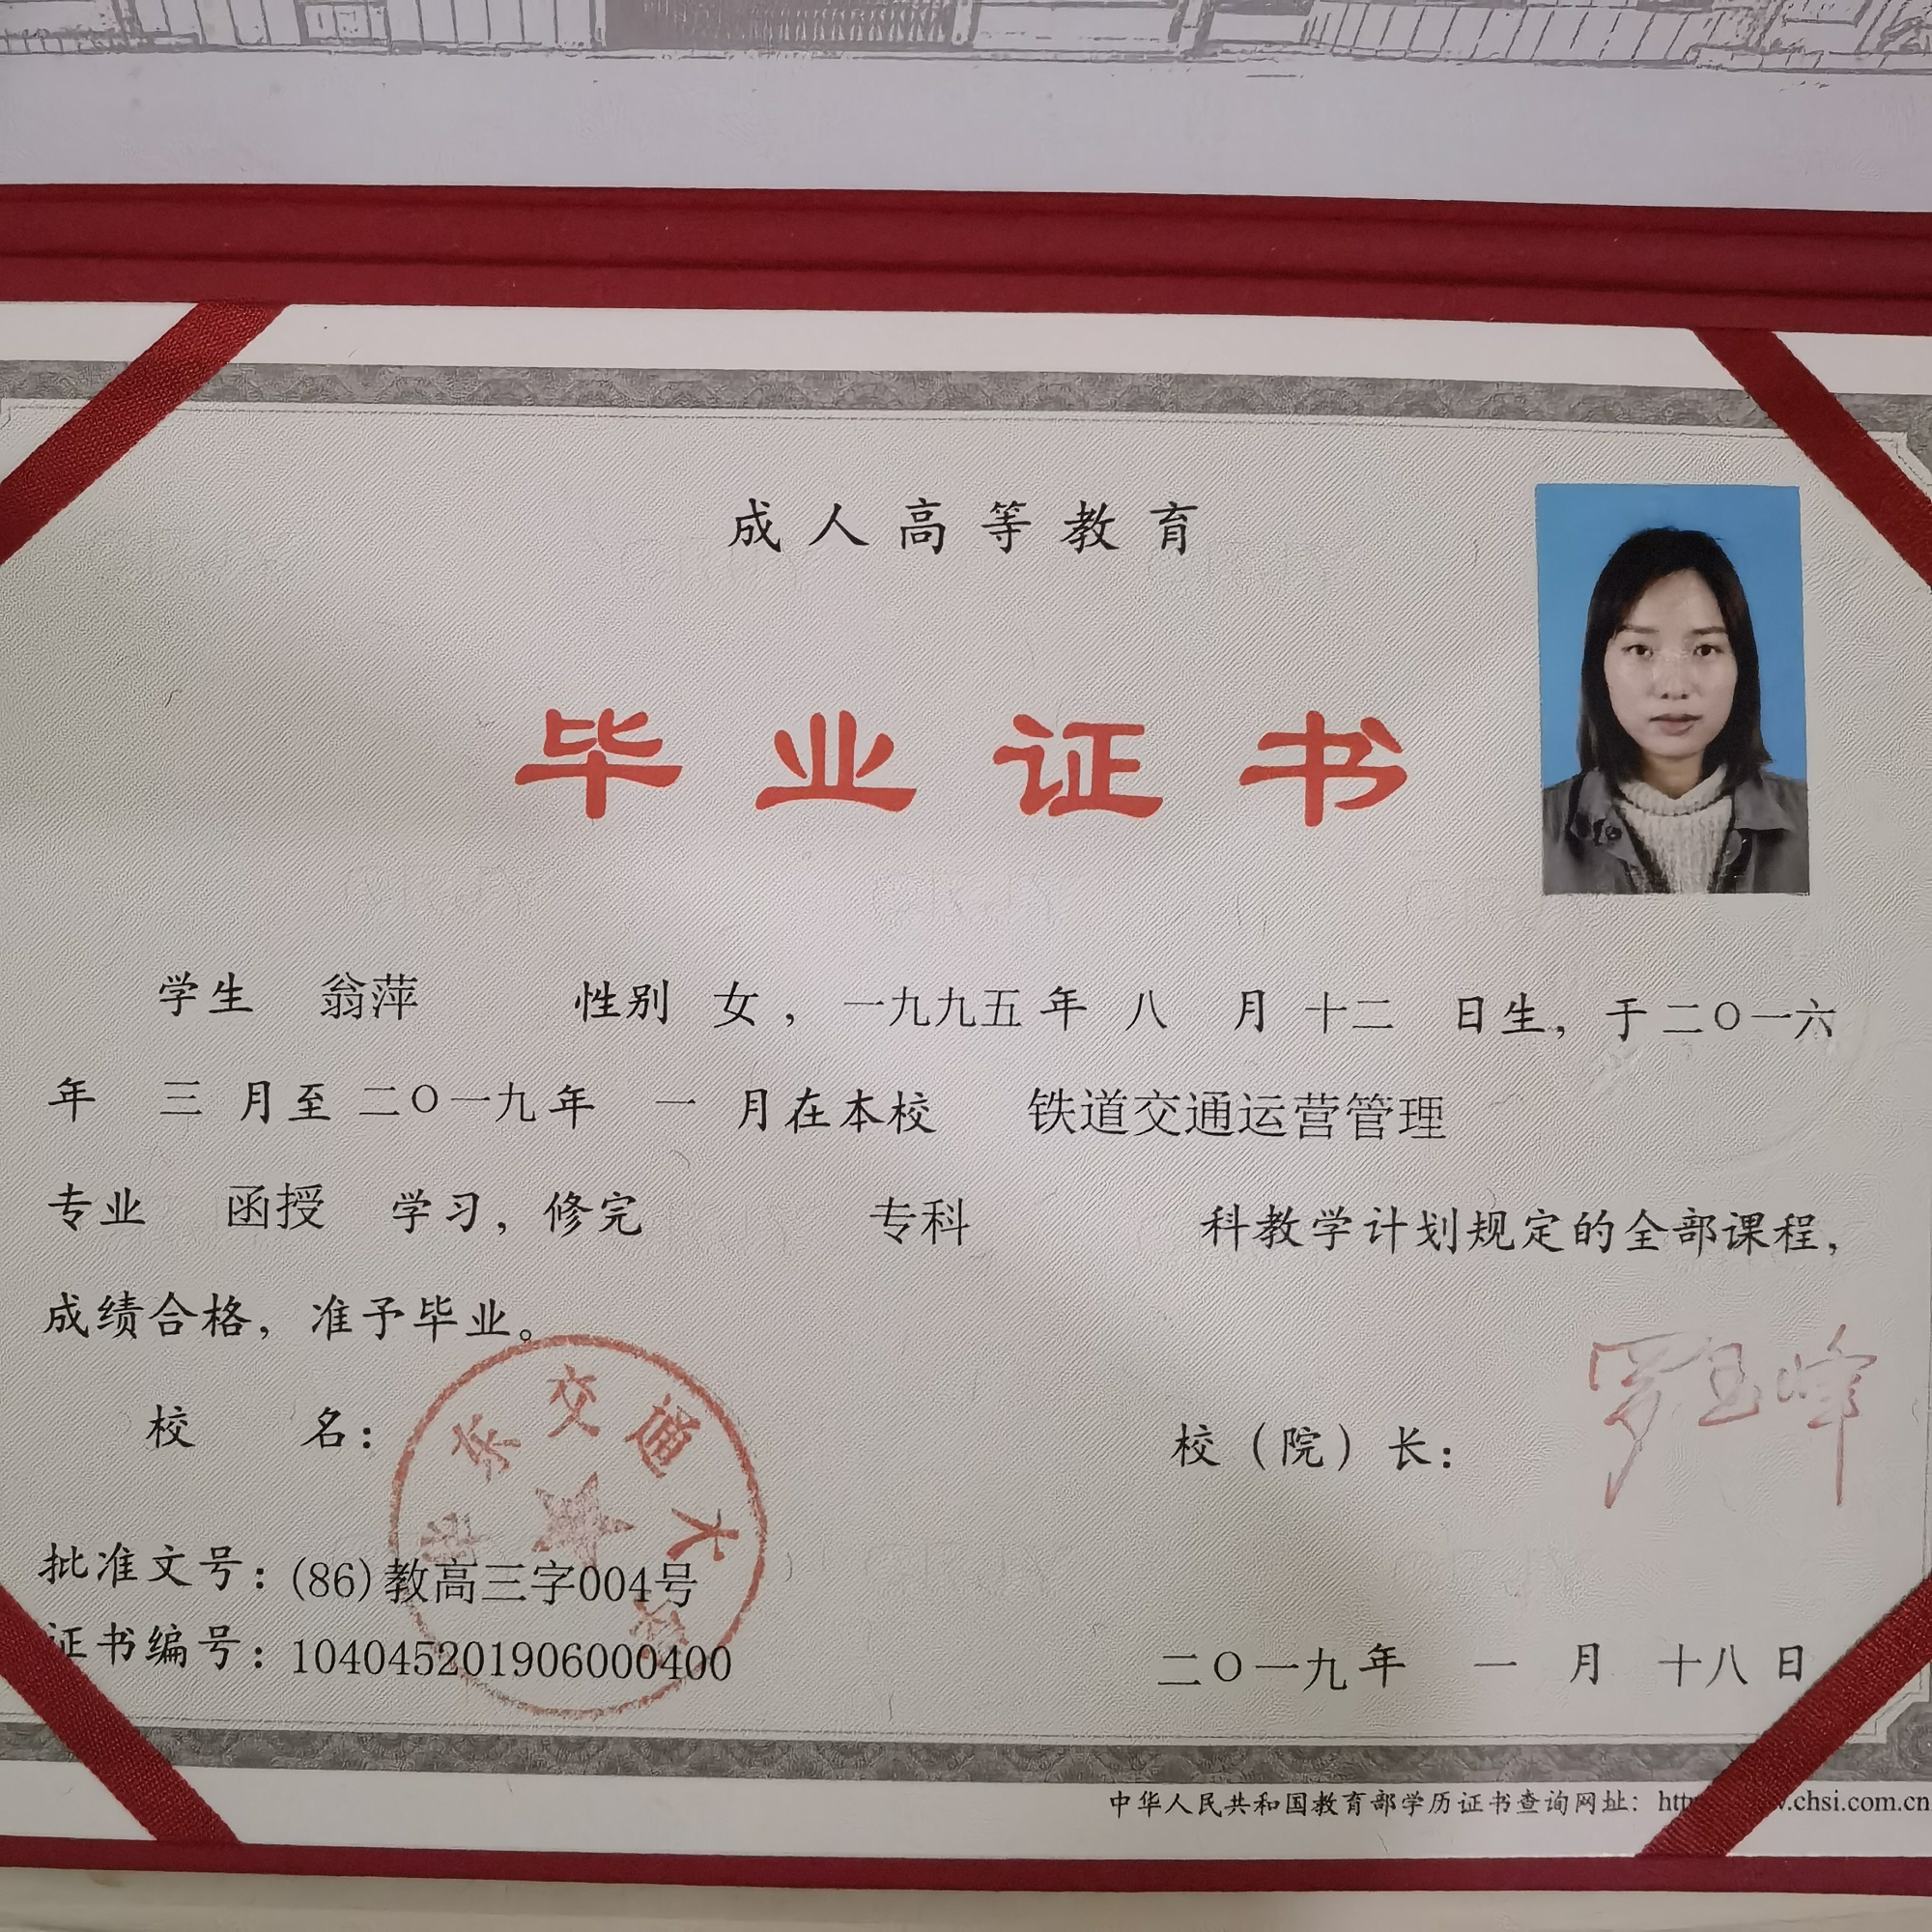 成人高等教育
毕业证书
学生 翁萍 性别 女，一九九五年 八 月 十二 日生，于二〇一六
年 三 月至二〇一九年 一 月在本校 铁道交通运营管理
专业 函授 学习，修完 专科 科教学计划规定的全部课程，
成绩合格，准予毕业。
校 名：
华东交通大学
校（院）长：
罗玉峰
批准文号：(86)教高三字004号
证书编号：104045201906000400
二〇一九年 一 月 十八 日
中华人民共和国教育部学历证书查询网址：htt w.chsi.com.cn